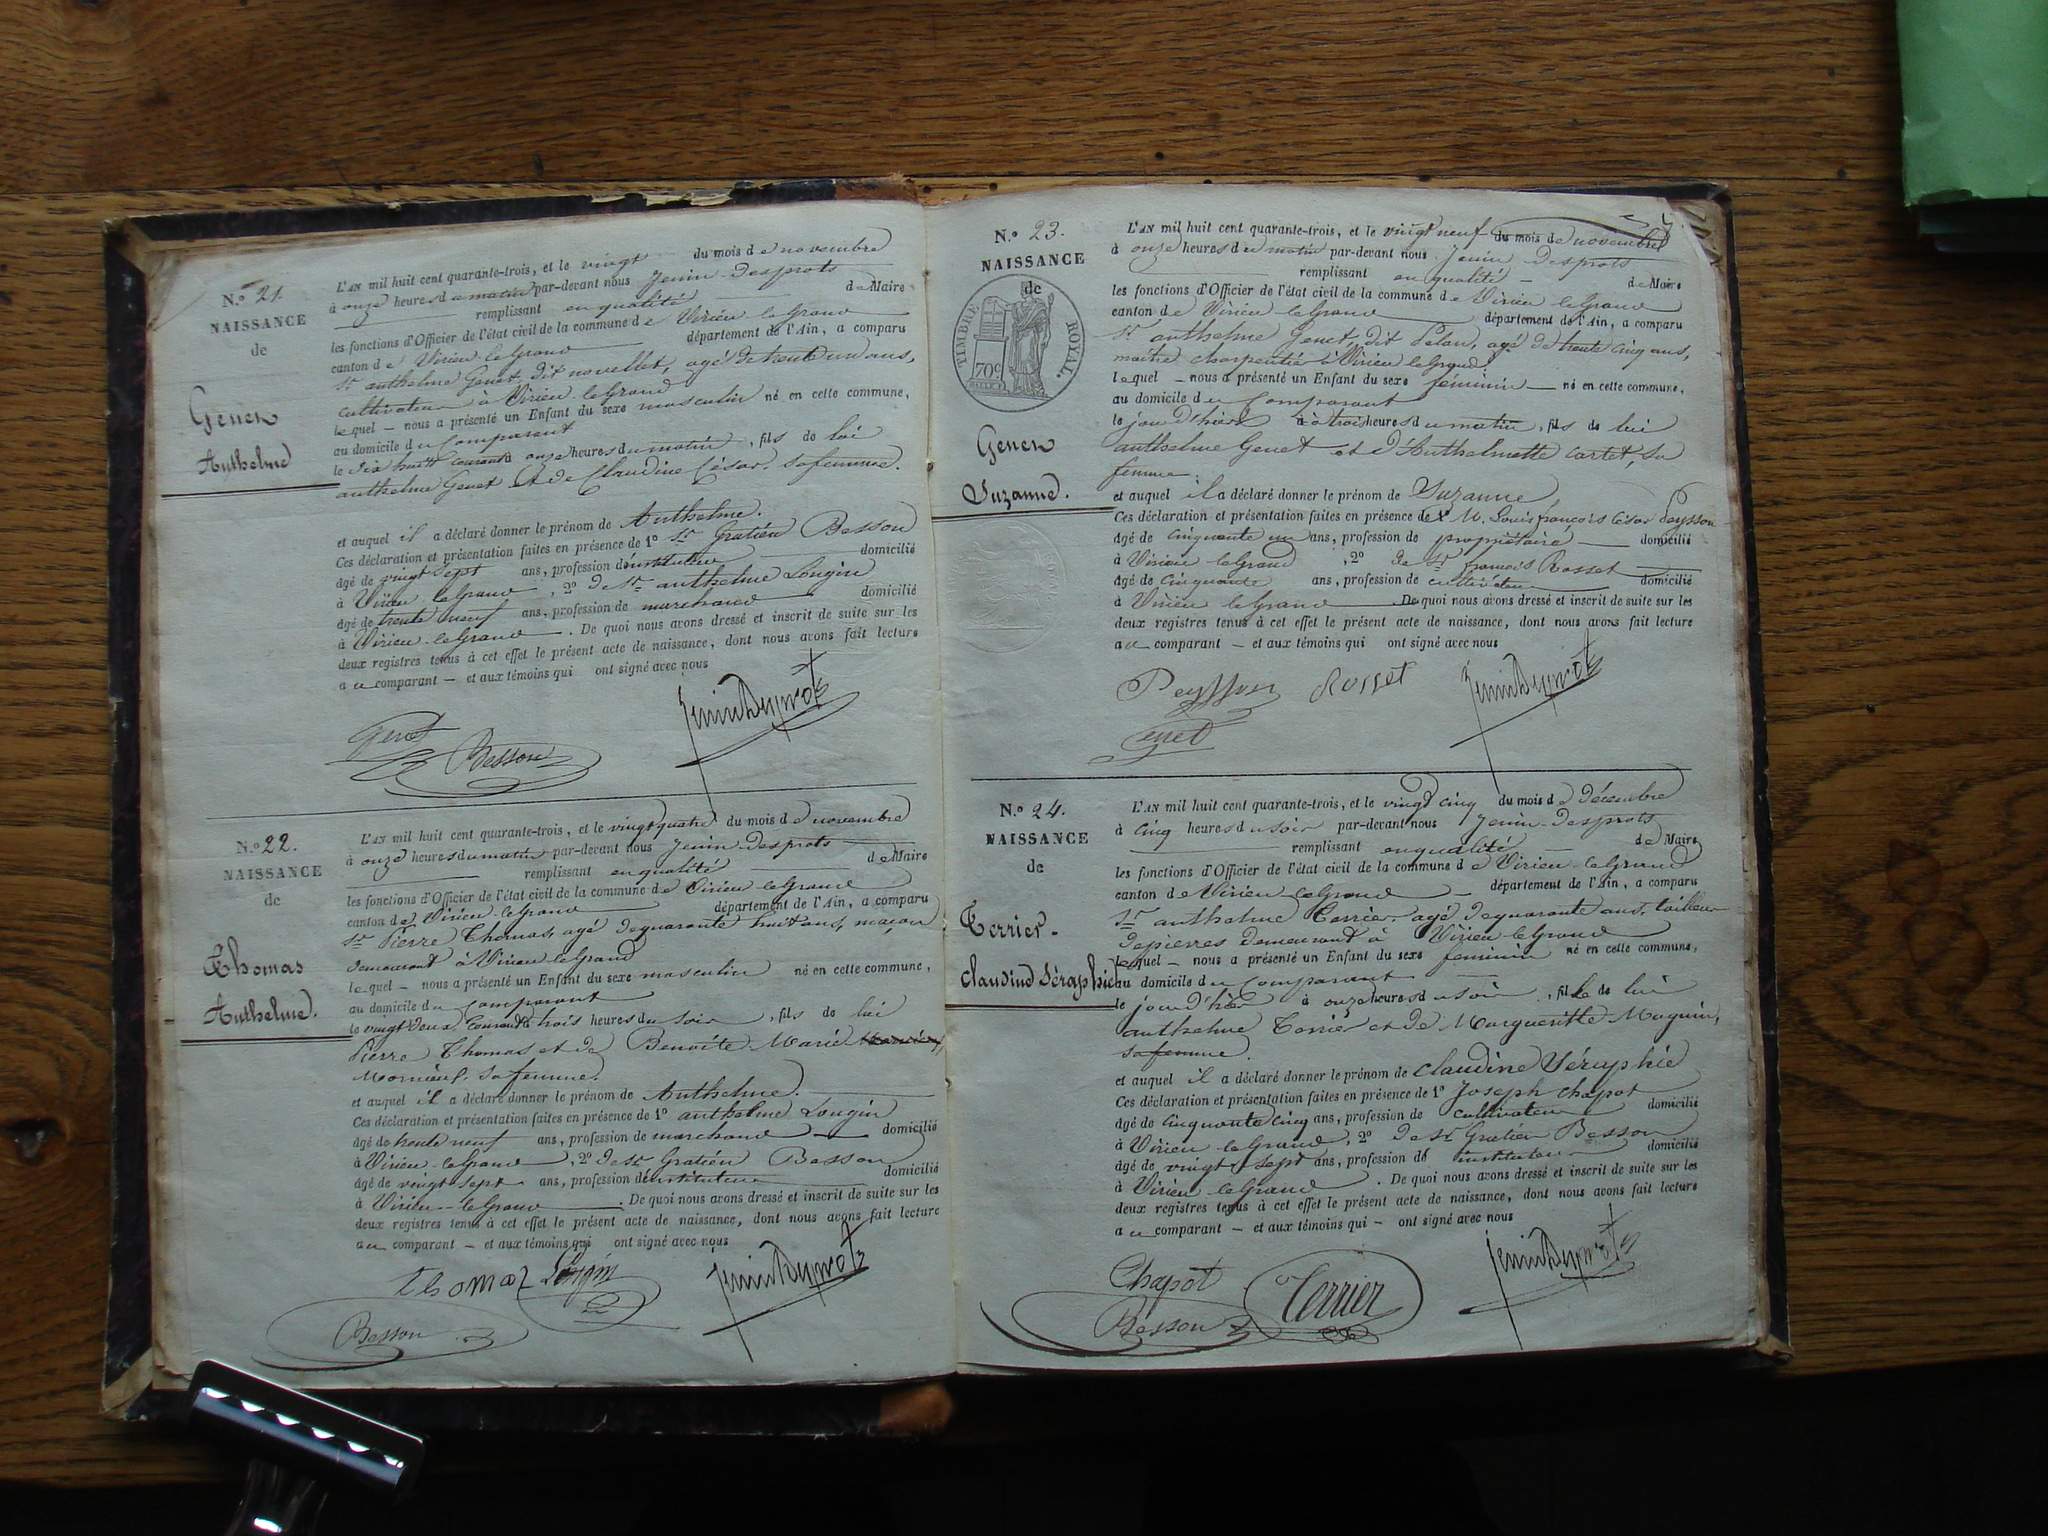 N.º 21.
NAISSANCE
de
Genet
Anthelme
L'AN mil huit cent quarante-trois, et le vingt du mois de novembre
à onze heures du matin par-devant nous Jenin-Desprots
remplissant en qualité de Maire
les fonctions d'Officier de l'état civil de la commune de Virieu le Grand
canton de Virieu-le-Grand département de l'Ain, a comparu
Sr. anthelme Genet, dit novellet, agé de trente un ans,
cultivateur à Virieu le Grand
lequel — nous a présenté un Enfant du sexe masculin né en cette commune,
au domicile du Comparant
le dix huit Courant à onze heures du matin, fils de lui
anthelme Genet et de Claudine César, sa femme.
et auquel il a déclaré donner le prénom de Anthelme.
Ces déclaration et présentation faites en présence de 1º Sr. Gratien Besson
âgé de vingt sept ans, profession d'instituteur domicilié
à Virieu le Grand, 2º de Sr. anthelme Longin
âgé de trente neuf ans, profession de marchand domicilié
à Virieu-le Grand. De quoi nous avons dressé et inscrit de suite sur les
deux registres tenus à cet effet le présent acte de naissance, dont nous avons fait lecture
au comparant — et aux témoins qui ont signé avec nous
Genet Besson JeninDesprots
N.º 22.
NAISSANCE
de
Thomas
Anthelme.
L'AN mil huit cent quarante-trois, et le vingt quatre du mois de novembre
à onze heures du matin par-devant nous Jenin-Desprots
remplissant en qualité de Maire
les fonctions d'Officier de l'état civil de la commune de Virieu-le Grand
canton de Virieu-le-Grand département de l'Ain, a comparu
Sr. Pierre Thomas, agé de quarante huit ans, maçon
demeurant à Virieu le Grand
lequel — nous a présenté un Enfant du sexe masculin né en cette commune,
au domicile du Comparant
le vingt deux Courant à trois heures du soir, fils de lui
Pierre Thomas et de Benoite-Marie
sa femme.
et auquel il a déclaré donner le prénom de Anthelme.
Ces déclaration et présentation faites en présence de 1º anthelme Longin
âgé de trente neuf ans, profession de marchand domicilié
à Virieu-le Grand, 2º de Sr. Gratien Besson
âgé de vingt sept ans, profession d'instituteur domicilié
à Virieu-le Grand. De quoi nous avons dressé et inscrit de suite sur les
deux registres tenus à cet effet le présent acte de naissance, dont nous avons fait lecture
au comparant — et aux témoins qui ont signé avec nous
Thomas Longin JeninDesprots
Besson
N.º 23.
NAISSANCE
de
TIMBRE ROYAL.
70c
Genet
Suzanne.
L'AN mil huit cent quarante-trois, et le vingt neuf du mois de novembre
à onze heures du matin par-devant nous Jenin Desprots
remplissant en qualité — de Maire
les fonctions d'Officier de l'état civil de la commune de Virieu le Grand
canton de Virieu le Grand département de l'Ain, a comparu
Sr. anthelme Genet, dit agé de trente cinq ans,
maître charpentié à Virieu le Grand
lequel — nous a présenté un Enfant du sexe féminin — né en cette commune,
au domicile du Comparant
le jour d'hier à trois heures du matin, fils de lui
anthelme Genet et d'Anthelmette cartet, sa
femme.
et auquel il a déclaré donner le prénom de Suzanne
Ces déclaration et présentation faites en présence de 1º M. Louis françois César Peysson
âgé de cinquante un ans, profession de propriétaire — domicilié
à Virieu le Grand, 2º de Sr. francois Rosset
âgé de cinquante ans, profession de cultivateur domicilié
à Virieu le Grand. De quoi nous avons dressé et inscrit de suite sur les
deux registres tenus à cet effet le présent acte de naissance, dont nous avons fait lecture
au comparant — et aux témoins qui ont signé avec nous
Peysson Rosset JeninDesprots
Genet
N.º 24.
NAISSANCE
de
Terrier-
Claudine Séraphie
L'AN mil huit cent quarante-trois, et le vingt cinq du mois de Décembre
à cinq heures du soir par-devant nous Jenin-Desprots
remplissant en qualité — de Maire
les fonctions d'Officier de l'état civil de la commune de Virieu-le Grand
canton de Virieu-le Grand — département de l'Ain, a comparu
Sr. anthelme Terrier, agé de quarante ans, tailleur
de pierres demeurant à Virieu-le Grand
lequel — nous a présenté un Enfant du sexe féminin né en cette commune,
au domicile du Comparant
le jour d'hier à onze heures du soir, fille de lui
anthelme Terrier et de Margueritte Maguin,
sa femme.
et auquel il a déclaré donner le prénom de Claudine Séraphie
Ces déclaration et présentation faites en présence de 1º Joseph Chapot
âgé de cinquante cinq ans, profession de cultivateur domicilié
à Virieu-le Grand, 2º de Sr. Gratien Besson
âgé de vingt sept ans, profession de instituteur domicilié
à Virieu le Grand. De quoi nous avons dressé et inscrit de suite sur les
deux registres tenus à cet effet le présent acte de naissance, dont nous avons fait lecture
au comparant — et aux témoins qui — ont signé avec nous
Chapot Terrier JeninDesprots
Besson